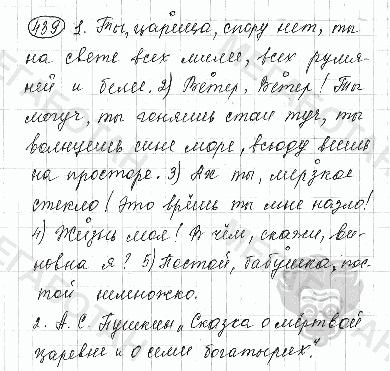 439 1. Ты, царица, спору нет, ты
на свете всех милее, всех румя-
ней и белее. 2) Ветер, Ветер! Ты
могуч, ты гоняешь стаи туч, ты
волнуешь сине море, всюду веешь
на просторе. 3) Ах ты, мерзкое
стекло! Это врёшь ты мне назло!
4) Жизнь моя! В чём, скажи, ви-
новна я? 5) Постой, бабушка, пос-
той немножко.
2. А. С. Пушкин „Сказка о мёртвой
царевне и о семи богатырях".
МЕГАБОТАН